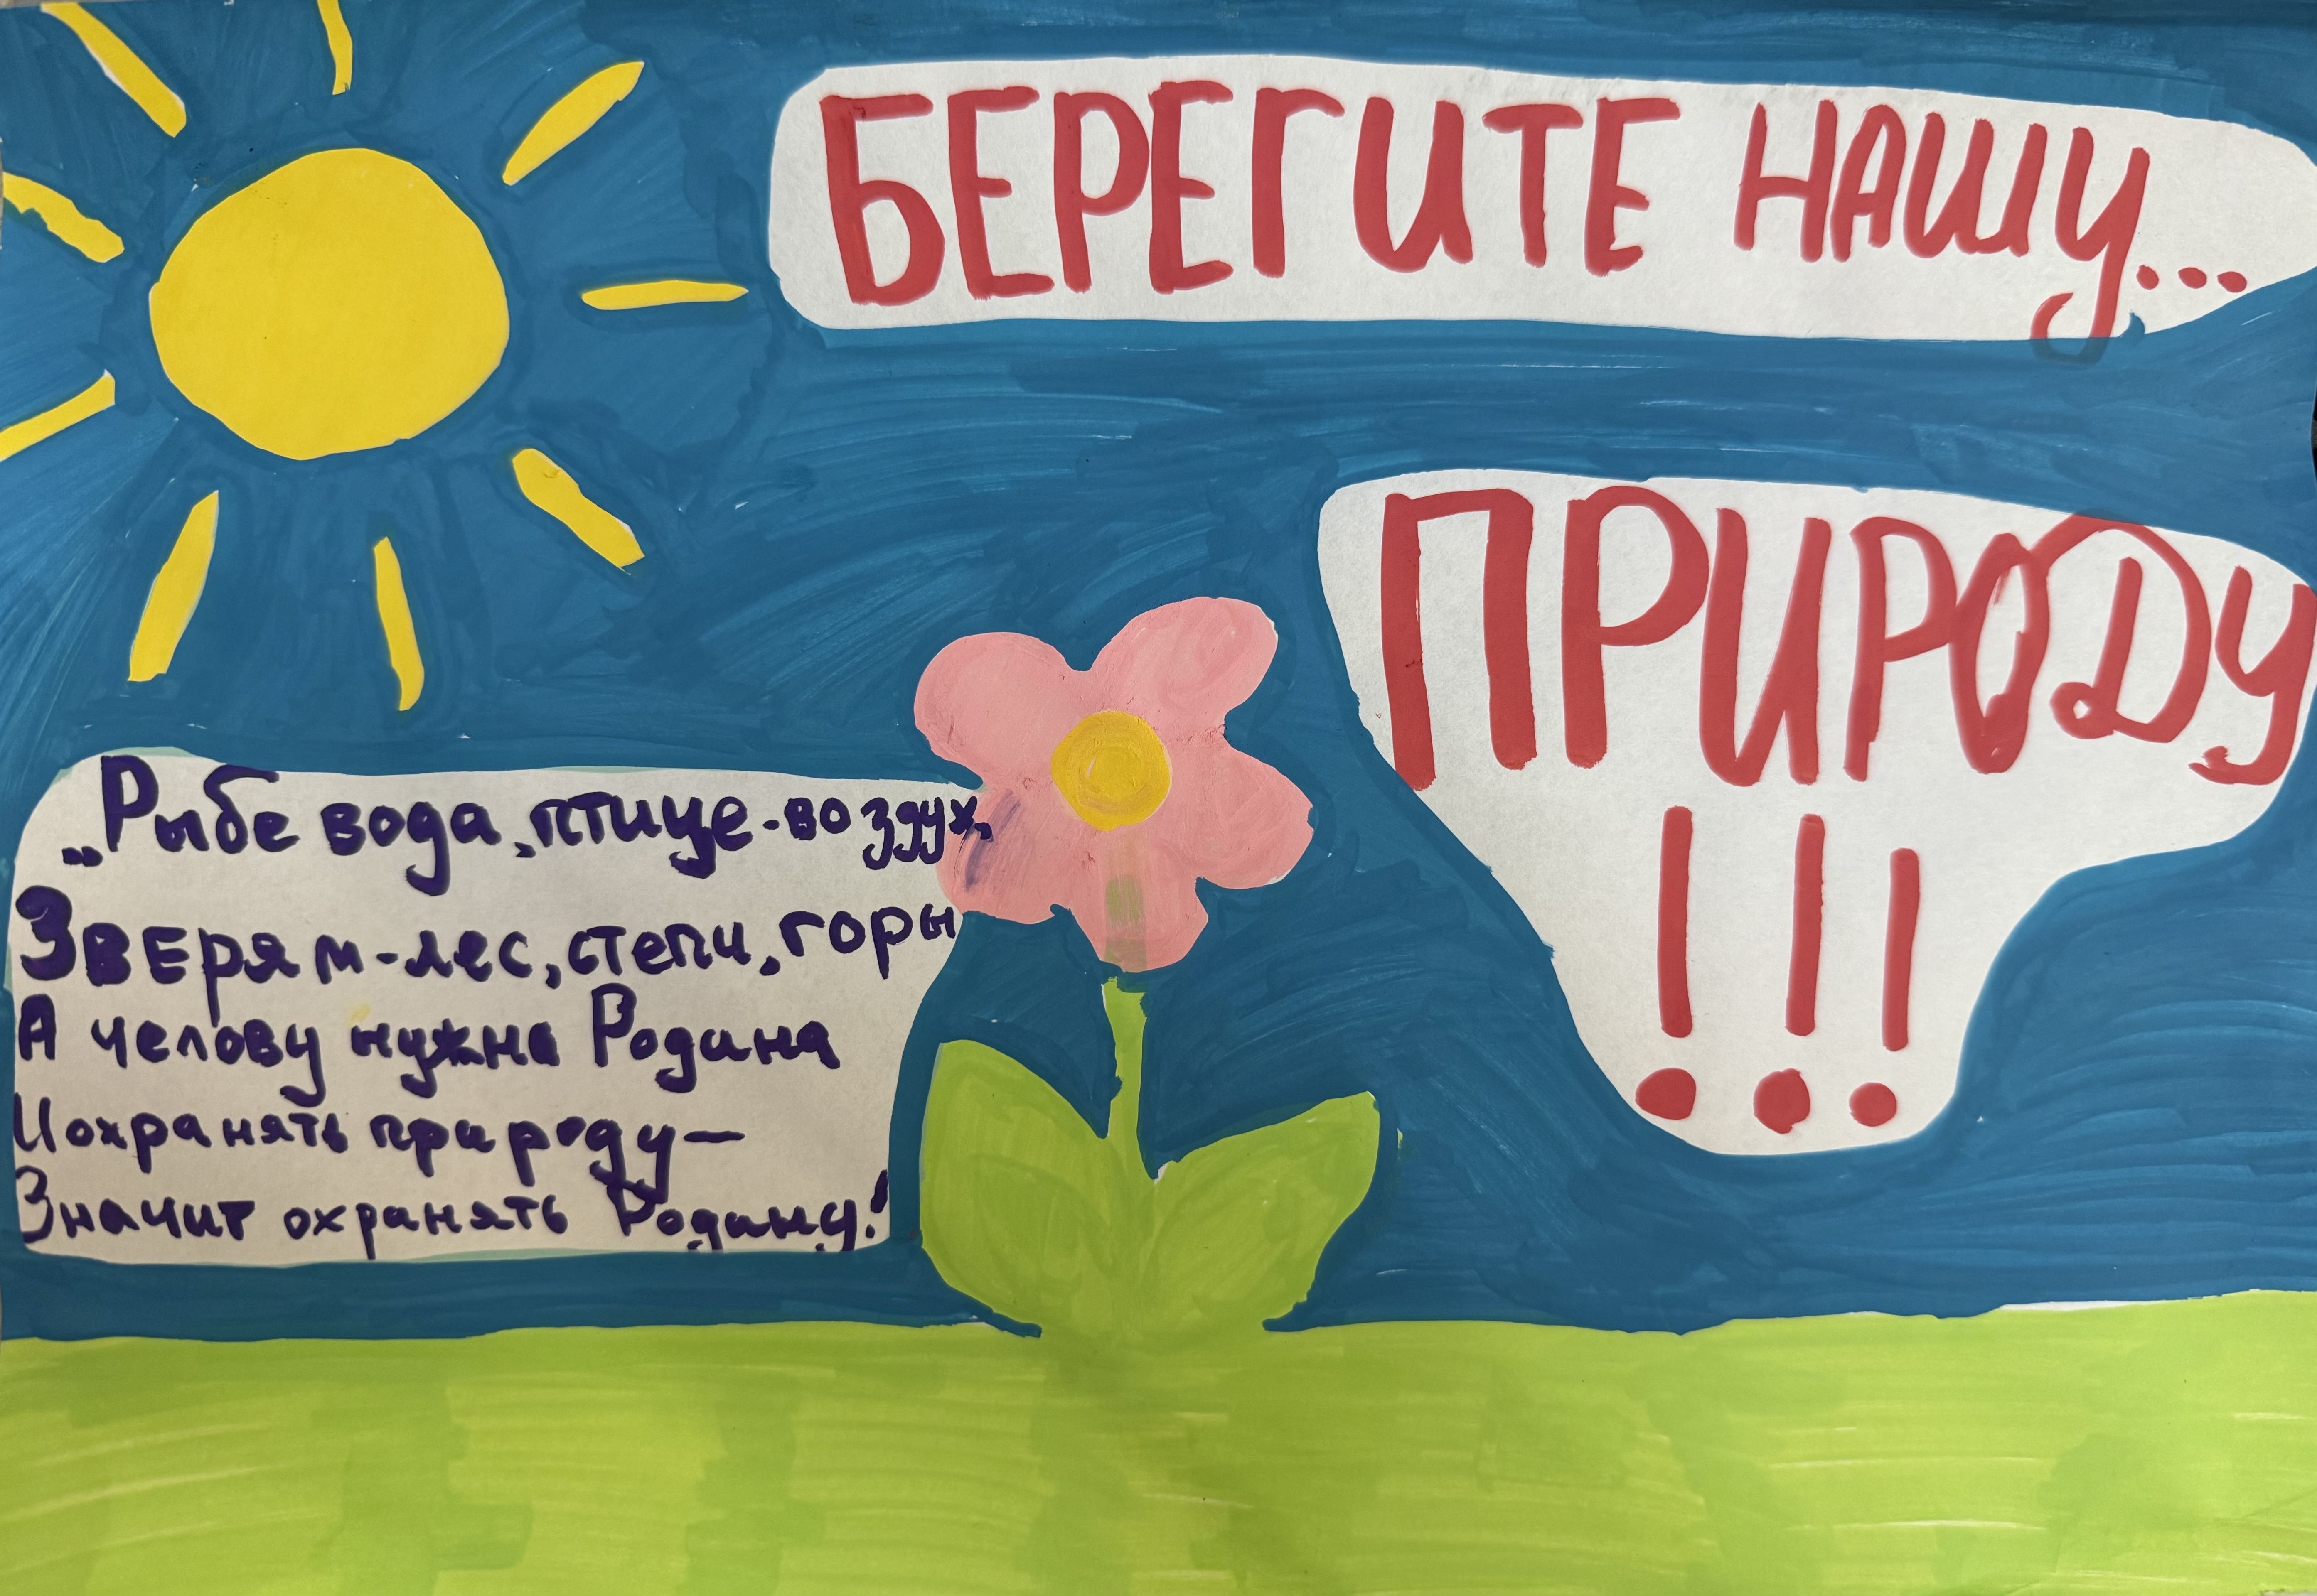 БЕРЕГИТЕ НАШУ...
ПРИРОДУ
!!!
„Рыбе вода, птице-воздух,
Зверям-лес, степи, горы
А челову нужна Родина
И охранять природу—
Значит охранять Родину!